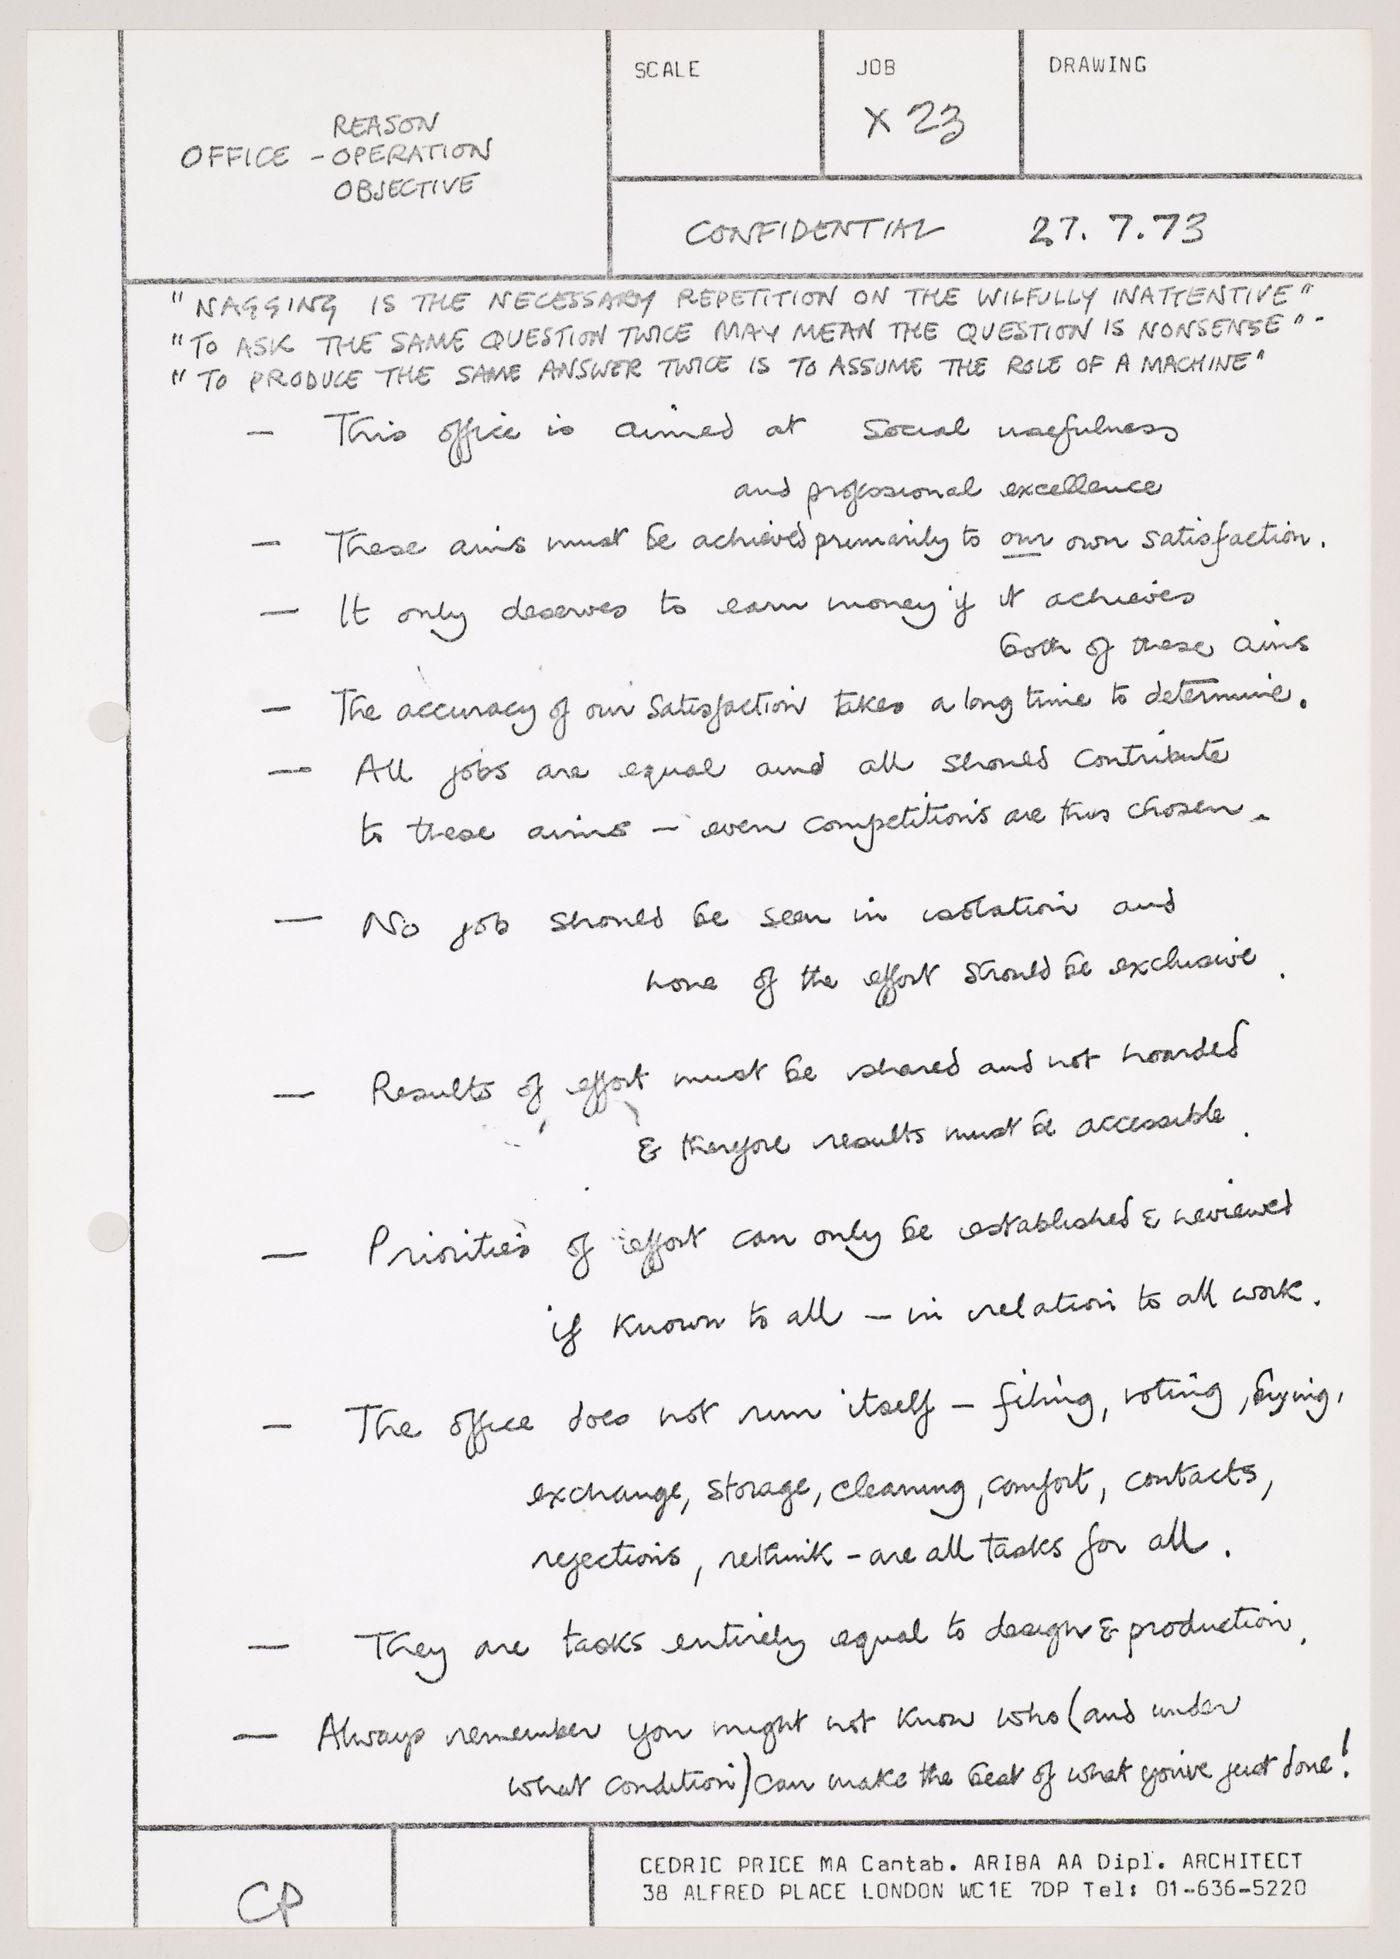 SCALE
JOB
DRAWING
X 23
REASON
OFFICE - OPERATION
OBJECTIVE
CONFIDENTIAL 27. 7. 73
"NAGGING IS THE NECESSARY REPETITION ON THE WILFULLY INATTENTIVE"
"TO ASK THE SAME QUESTION TWICE MAY MEAN THE QUESTION IS NONSENSE" -
"TO PRODUCE THE SAME ANSWER TWICE IS TO ASSUME THE ROLE OF A MACHINE"
— This office is aimed at social usefulness
and professional excellence
— These aims must be achieved primarily to our own satisfaction.
— It only deserves to earn money if it achieves
both of these aims
— The accuracy of our satisfaction takes a long time to determine.
— All jobs are equal and all should contribute
to these aims — even competitions are thus chosen.
— No job should be seen in isolation and
none of the effort should be exclusive.
— Results of effort must be shared and not hoarded
& therefore results must be accessible.
— Priorities of effort can only be established & reviewed
if known to all — in relation to all work.
— The office does not run itself — filing, voting, buying,
exchange, storage, cleaning, comfort, contacts,
rejections, rethink - are all tasks for all.
— They are tasks entirely equal to design & production.
— Always remember you might not know who (and under
what condition) can make the best of what you've just done!
CP
CEDRIC PRICE MA Cantab. ARIBA AA Dipl. ARCHITECT
38 ALFRED PLACE LONDON WC1E 7DP Tel: 01-636-5220